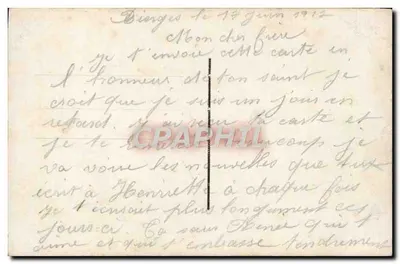 le 14 juin 1912
Mon cher frere
je t'envoie cette carte en
l'honneur de ton saint je
croit que je suis un jours en
retard. j'ai reçu la carte et
je te
CPARAMA
va voire les nouvelles que tu
ecrit à Henriette a chaque fois
je t'ecrirait plus longuement ces
jours-ci. Ta sœur Renée qui t'
aime et qui t'embrasse tendrement